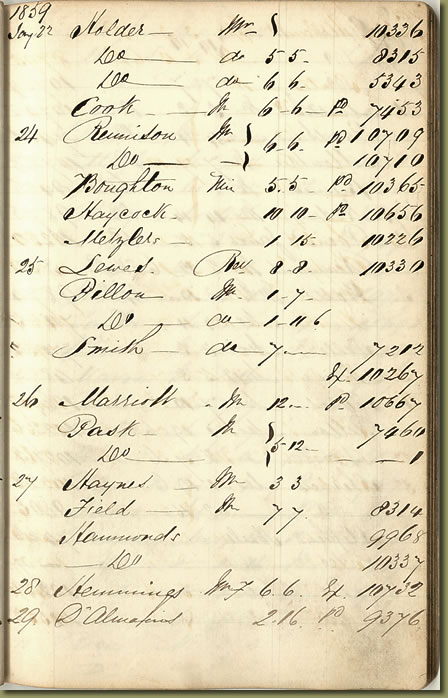 1859
Jany 22 Holder Mr 10336
Do do 5 5 8315
Do do 6 6 5343
Cook Mr 6 6 Pd 7453
24 Rennison Mr 6 6 Pd 10709
Do 10710
Boughton 5.5 Pd 10365
Haycock 10 10 Pd 10656
Metzler 1 15 10226
25 Lewes 8 8 10330
Dillon Mr 1 7
Do do 1 11 6
Smith do 7 7212
Ex 10267
26 Marriott Mr 12 Pd 10667
Pask Mr 5 12 7460
Do 1
27 Haynes Mr 3 3
Field Mr 7 7 8314
Hammonds 9968
Do 10337
28 Hemmings 6 6 Ex 10732
29 D'Almaines 2.16 Pd 9376